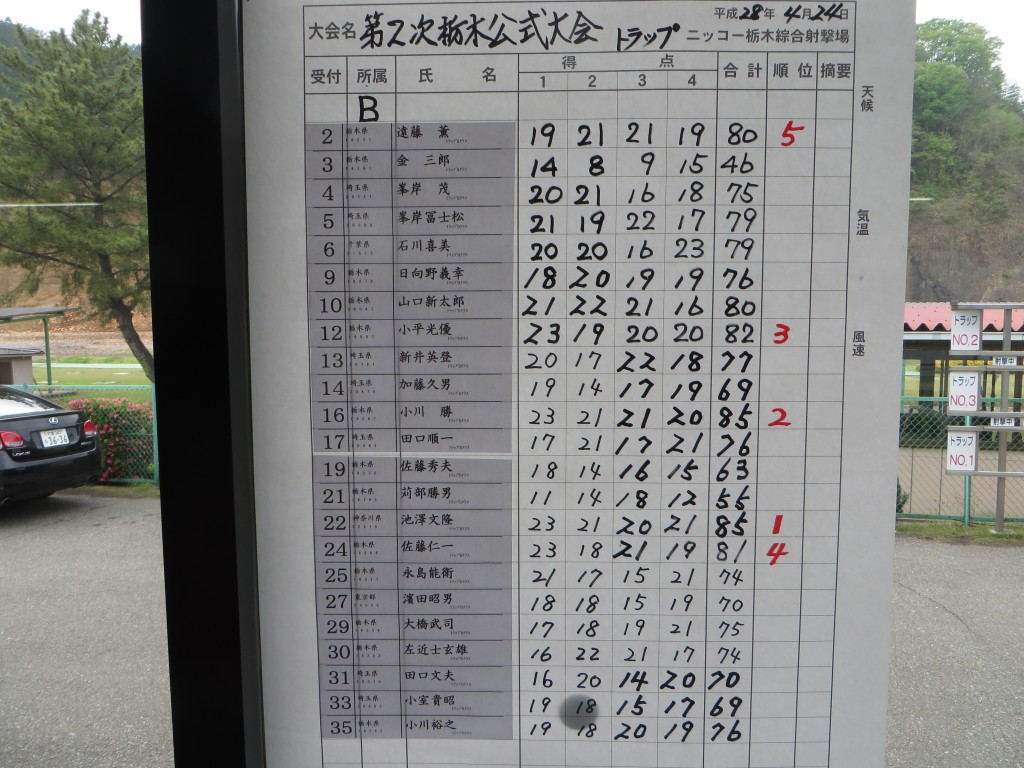 大会名 第2次栃木公式大会 トラップ 平成28年 4月24日
ニッコー栃木綜合射撃場
受付 所属 氏 名 得 点 合計 順位 摘要
1 2 3 4
B
2 栃木県 遠藤 薫 19 21 21 19 80 5
3 栃木県 金 三郎 14 8 9 15 46
4 埼玉県 峯岸 茂 20 21 16 18 75
5 埼玉県 峯岸冨士松 21 19 22 17 79
6 千葉県 石川喜美 20 20 16 23 79
9 栃木県 日向野義幸 18 20 19 19 76
10 栃木県 山口新太郎 21 22 21 16 80
12 栃木県 小平光優 23 19 20 20 82 3
13 埼玉県 新井英登 20 17 22 18 77
14 埼玉県 加藤久男 19 14 17 19 69
16 栃木県 小川 勝 23 21 21 20 85 2
17 埼玉県 田口順一 17 21 17 21 76
19 栃木県 佐藤秀夫 18 14 16 15 63
21 栃木県 苅部勝男 11 14 18 12 55
22 神奈川県 池澤文隆 23 21 20 21 85 1
24 栃木県 佐藤仁一 23 18 21 19 81 4
25 栃木県 永島能衛 21 17 15 21 74
27 東京都 濱田昭男 18 18 15 19 70
29 栃木県 大橋武司 17 18 19 21 75
30 栃木県 左近士玄雄 16 22 21 17 74
31 埼玉県 田口文夫 16 20 14 20 70
33 埼玉県 小室貴昭 19 18 15 17 69
35 栃木県 小川裕之 19 18 20 19 76
天候
気温
風速
トラップ
NO,2
射撃中
トラップ
NO,3
射撃中
トラップ
NO,1
36-36